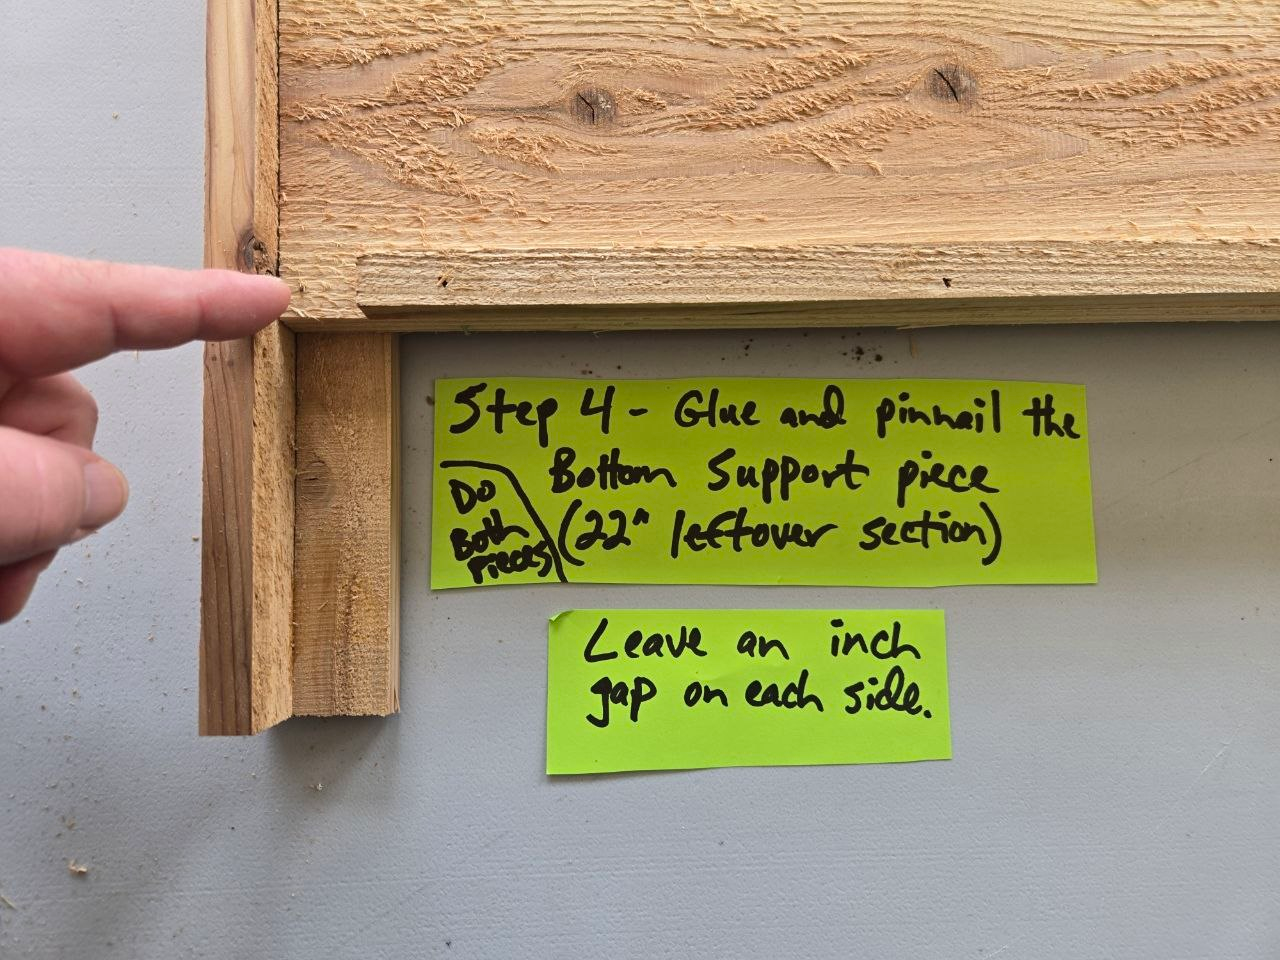 Step 4 - Glue and pinnail the
Bottom Support piece
(22" leftover section)
Do
Both
Pieces
Leave an inch
gap on each side.